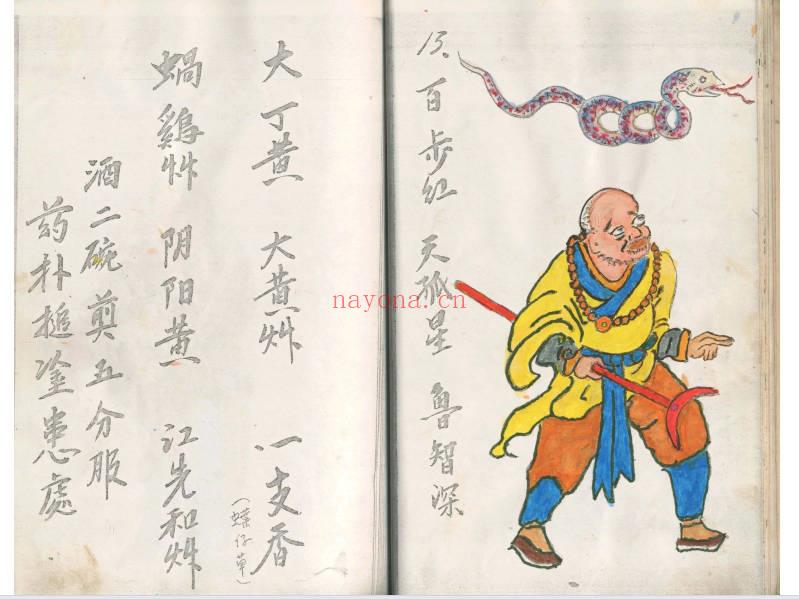 13、百步红 天孤星 鲁智深
大丁黄 大黄艸 一支香
(蟮仔草)
蝸鷄艸 阴阳黄 江先和艸
酒二碗煎五分服
药朴搥塗患處
nayona.cn